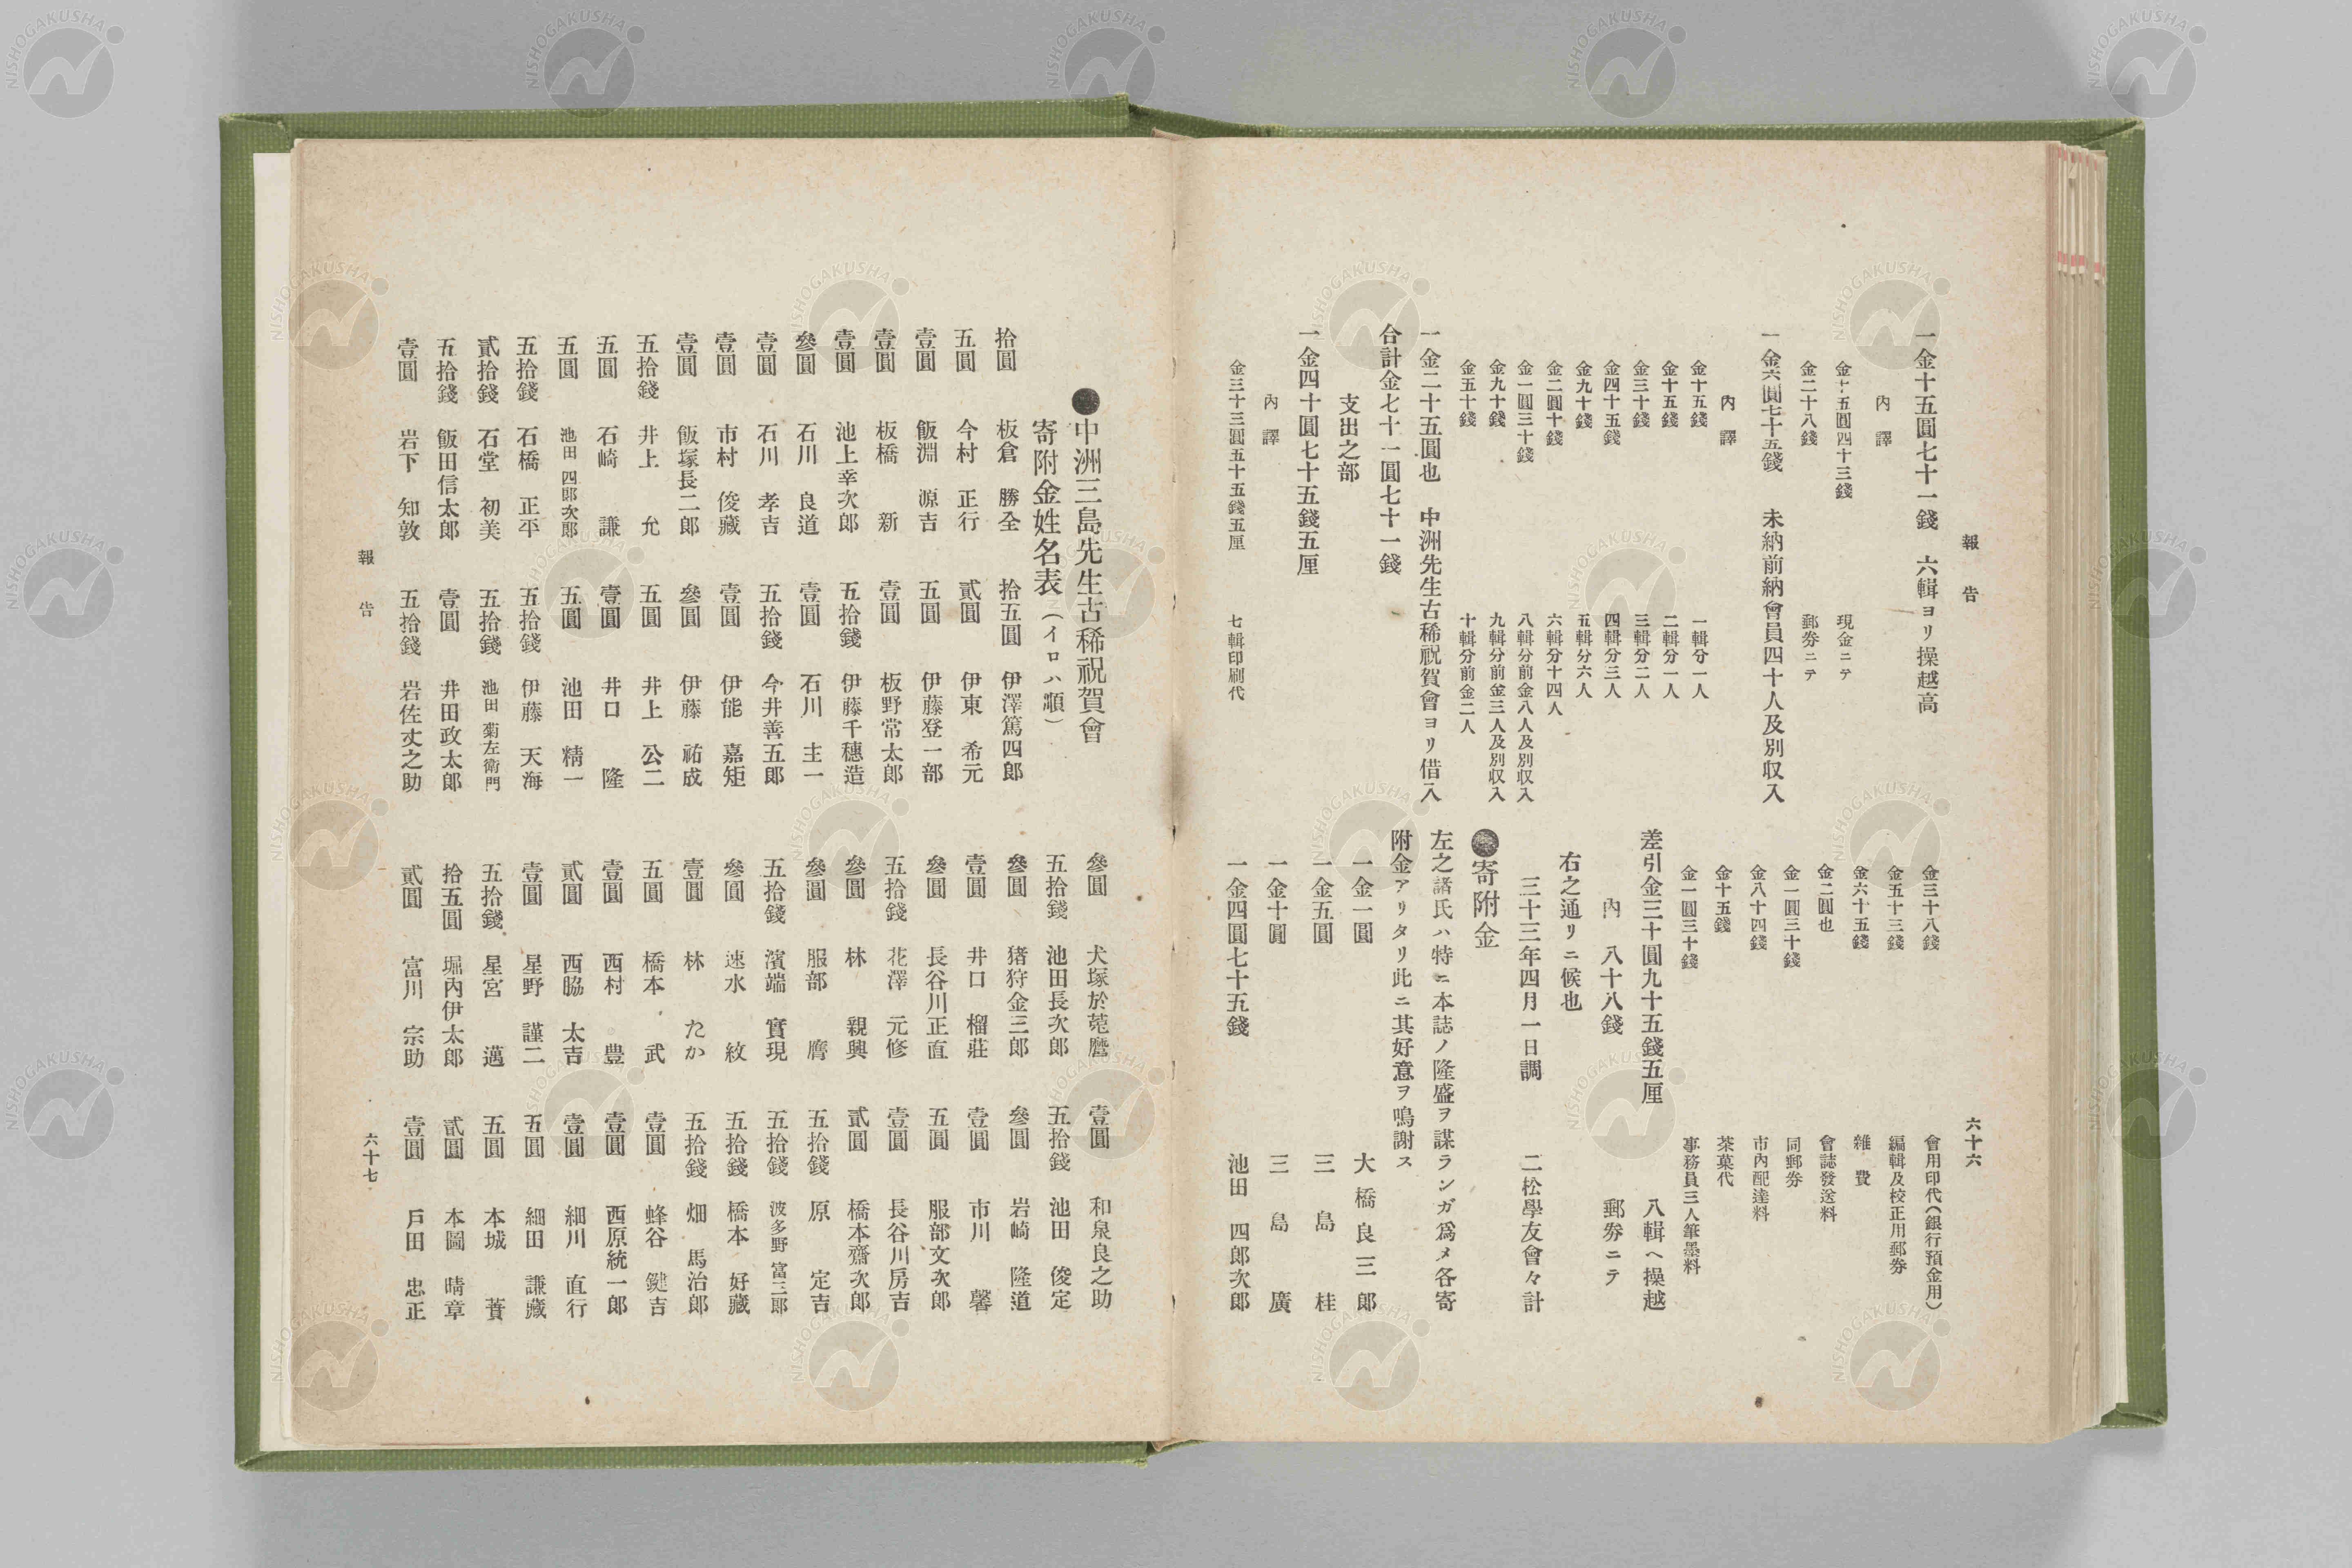 報告
六十六
一金十五圓七十一錢　六輯ヨリ操越高
內譯
金十五圓四十三錢　現金ニテ
金二十八錢　郵券ニテ
一金六圓七十五錢　未納前納會員四十人及別収入
內譯
金十五錢　一輯分一人
金十五錢　二輯分一人
金三十錢　三輯分二人
金四十五錢　四輯分三人
金九十錢　五輯分六人
金二圓十錢　六輯分十四人
金一圓三十錢　八輯分前金八人及別収入
金九十錢　九輯分前金三人及別収入
金五十錢　十輯分前金二人
一金二十五圓也　中洲先生古稀祝賀會ヨリ借入
合計金七十一圓七十一錢
支出之部
一金四十圓七十五錢五厘
內譯
金三十三圓五十五錢五厘　七輯印刷代
金三十八錢　會用印代(銀行預金用)
金五十三錢　編輯及校正用郵券
金六十五錢　雜費
金二圓也　會誌發送料
金一圓三十錢　同郵券
金八十四錢　市內配達料
金十五錢　茶菓代
金一圓三十錢　事務員三人筆墨料
差引金三十圓九十五錢五厘　八輯ヘ操越
內　八十八錢　郵券ニテ
右之通リニ候也
三十三年四月一日調　二松學友會々計
●寄附金
左之諸氏ハ特ニ本誌ノ隆盛ヲ謀ランガ爲メ各寄
附金アリタリ此ニ其好意ヲ鳴謝ス
一金一圓　大橋良三郎
一金五圓　三島桂
一金十圓　三島廣
一金四圓七十五錢　池田四郎次郎
●中洲三島先生古稀祝賀會
寄附金姓名表(イロハ順)
拾圓　板倉勝全
五圓　今村正行
壹圓　飯淵源吉
壹圓　板橋新
壹圓　池上幸次郎
參圓　石川良道
壹圓　石川孝吉
壹圓　市村俊藏
壹圓　飯塚長二郎
五拾錢　井上允
五圓　石崎謙
五圓　池田四郎次郎
五拾錢　石橋正平
貳拾錢　石堂初美
五拾錢　飯田信太郎
壹圓　岩下知敦
拾五圓　伊澤篤四郎
貳圓　伊東希元
五圓　伊藤登一部
壹圓　板野常太郎
五拾錢　伊藤千穗造
壹圓　石川主一
五拾錢　今井善五郎
壹圓　伊能嘉矩
參圓　伊藤祐成
五圓　井上公二
壹圓　井口隆
五圓　池田精一
五拾錢　伊藤天海
五拾錢　池田菊左衛門
壹圓　井田政太郎
五拾錢　岩佐丈之助
參圓　犬塚於菟麿
五拾錢　池田長次郎
參圓　猪狩金三郎
壹圓　井口榴莊
參圓　長谷川正直
五拾錢　花澤元修
參圓　林親興
參圓　服部膺
五拾錢　濱端實現
參圓　速水紋
壹圓　林たか
五圓　橋本武
壹圓　西村豊
貳圓　西脇太吉
壹圓　星野謹二
五拾錢　星宮邁
拾五圓　堀內伊太郎
貳圓　富川宗助
壹圓　和泉良之助
五拾錢　池田俊定
參圓　岩崎隆道
壹圓　市川馨
五圓　服部文次郎
壹圓　長谷川房吉
貳圓　橋本齋次郎
五拾錢　原定吉
五拾錢　波多野富三郎
五拾錢　橋本好藏
五拾錢　畑馬治郎
壹圓　蜂谷鍵吉
壹圓　西原統一郎
壹圓　細川直行
五圓　細田謙藏
五圓　本城蕡
貳圓　本圖晴章
壹圓　戶田忠正
報告
六十七
NISHOGAKUSHA